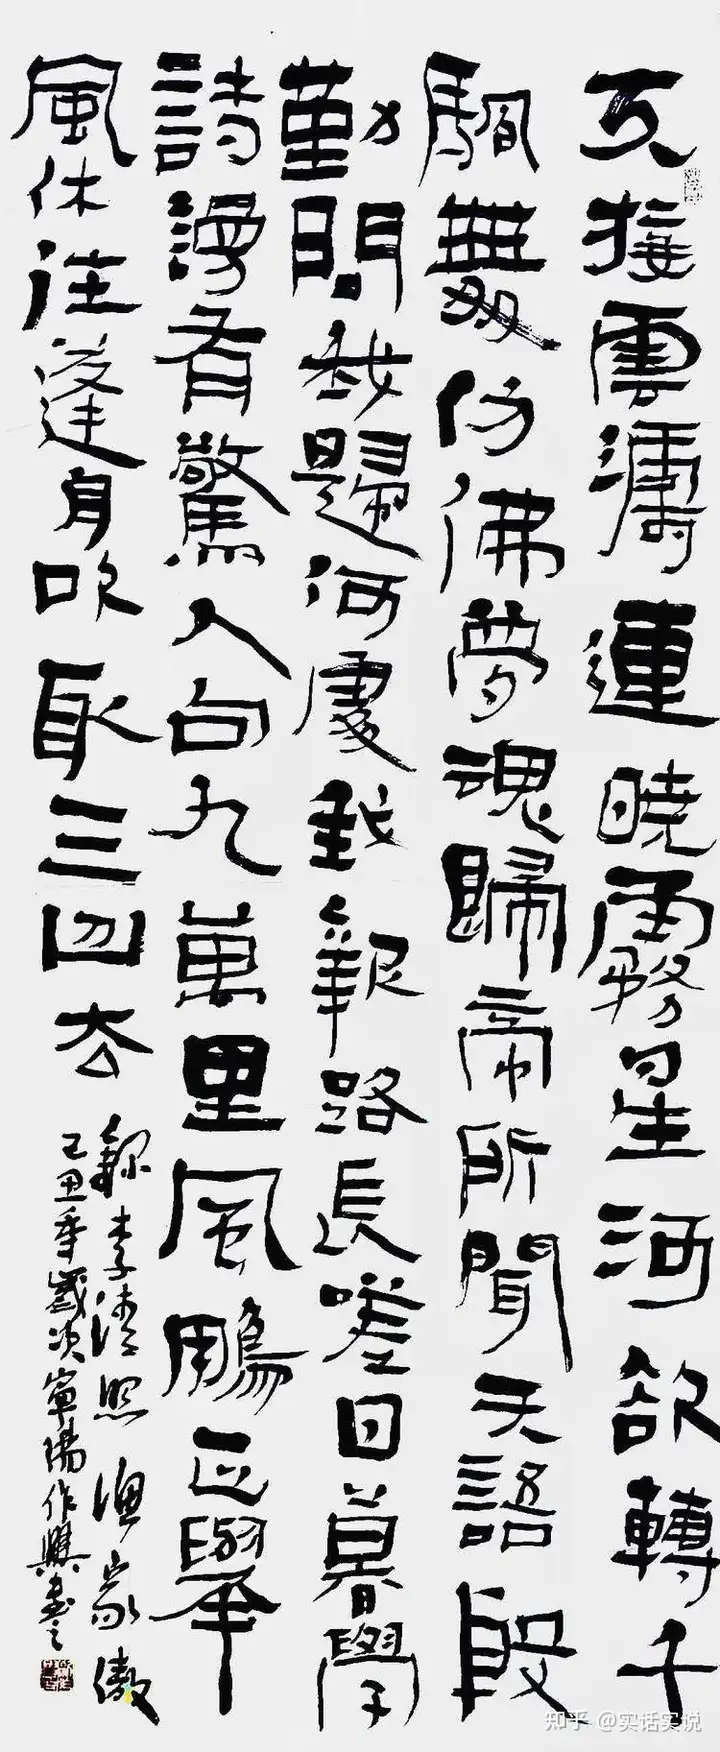 天接雲濤連曉霧星河欲轉千
颿舞仿佛夢魂歸帝所聞天語殷
勤問我歸何處我報路長嗟日暮學
詩漫有驚人句九萬里風鵬正舉
風休住蓬舟吹取三山去
錄李清照漁家傲
己丑年歲次寧陽作興書之
知乎 @实话实说